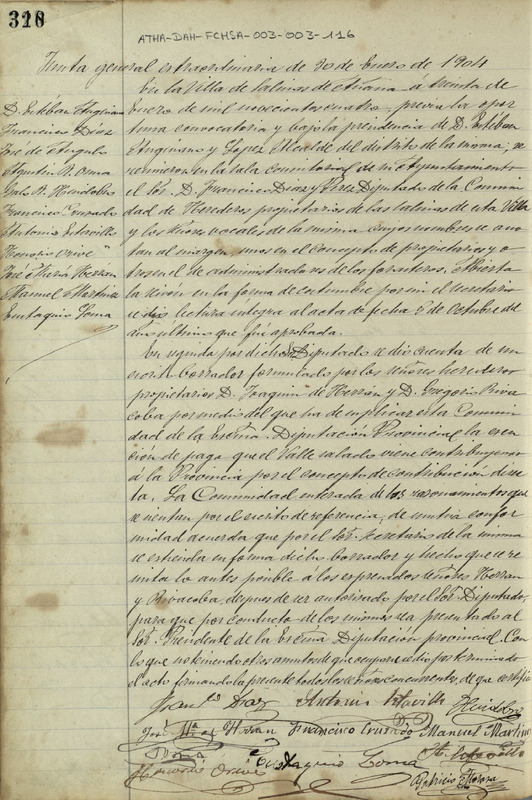 320
ATHA-DAH-FCHSA-003-003-116
Junta general extraordinaria de 30 de Enero de 1904
En la Villa de Salinas de Añana á treinta de
Enero de mil novecientos cuatro, previa la opor
tuna convocatoria y bajo la presidencia de D. Esteban
Angulo y Lopez Alcalde del distrito de la misma, se
reunieron en la sala consistorial de su Ayuntamiento
el Sor. D. Francisco Diaz y Perez Diputado de la Comuni
dad de Herederos propietarios de las salinas de esta Villa
y los señores vocales de la misma cuyos nombres se ano
tan al margen, unos en el concepto de propietarios y o
tros en el de administradores de los forasteros. Abierta
la sesión en la forma de costumbre por mi el secretario
se dió lectura íntegra al acta de fecha 2 de Octubre del
año último que fué aprobada.
D. Esteban
Francisco Diaz
José de Angulo
Agustin R. Osma
Huidobro
Francisco Cruzado
Antonio Estavillo
Honorio Orive
José María Herran
Manuel Martinez
Eustaquio Soma
En seguida por dicho Sor. Diputado se dió cuenta de un
escrito borrador formulado por los señores herederos
propietarios D. Joaquin de Herrán y D. Gregorio Riva
coba por medio del que ha de suplicar esta Comuni
dad de la Excma. Diputación Provincial la exen
ción de pago que el Valle salado viene contribuyendo
á la Provincia por el concepto de contribución direc
ta, La Comunidad enterada de los razonamientos que
se sientan por el escrito de referencia, de unánime confor
midad acuerda que por el Sor. Secretario de la misma
se estienda en forma dicho borrador y hecho que se re
mita lo antes posible a los espresados señores Herran
y Rivacoba, despues de ser autorizado por el Sor. Diputado,
para que por conducto de los mismos sea presentado al
Sor. Presidente de la Excma Diputacion provincial. Con
lo que no teniendo otros asuntos de que ocuparse se dio por terminado
el acto firmando la presente todos los señores concurrentes, de que certifico
Diaz Antonio Estavillo Huidobro
José Mª de Herran Francisco Cruzado Manuel Martinez
Osma
Honorio Orive Eustaquio Soma
Patricio